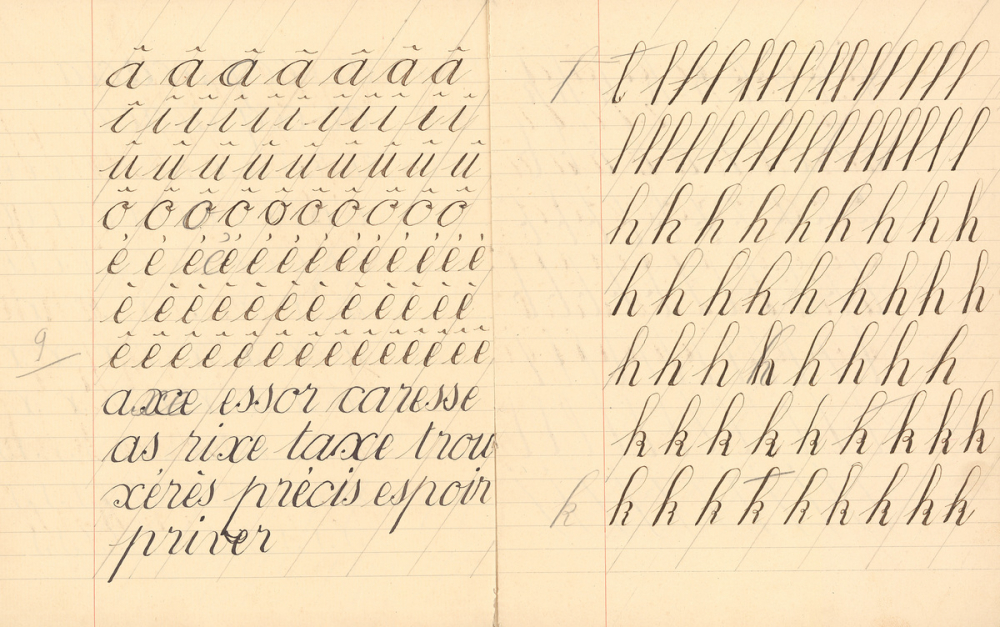 â â â â â â â
î î î î î î î î î î î
û û û û û û û û û
ô ô ô ô ô ô ô ô ô ô
é é é é é é é é é é é é é
è è è è è è è è è è è è
9 ê ê ê ê ê ê ê ê ê ê ê ê ê ê
axe essor caresse
as rixe taxe trou
xérès précis espoir
priver
l l l l l l l l l l l l l l
l l l l l l l l l l l l l l l l
h h h h h h h h h
h h h h h h h h h
h h h h h h h h
k k k k k k k k k
k k k k k k k k k k